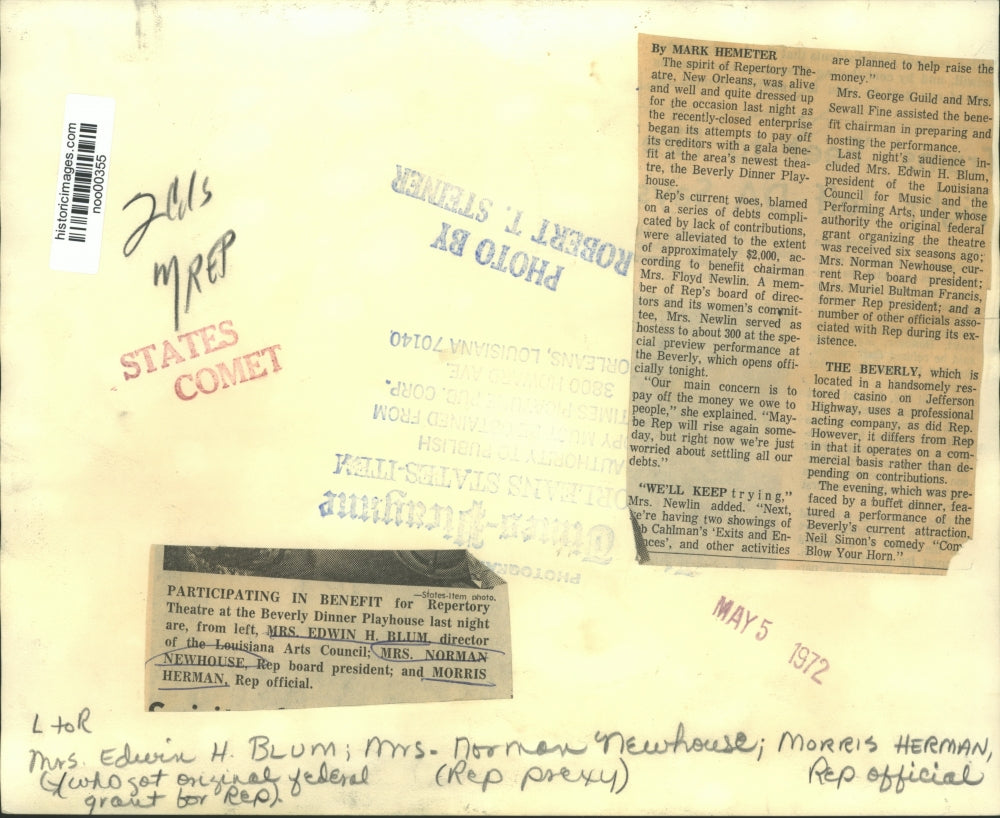 historicimages.com
noo00355
MREP
STATES
COMET
PHOTO BY
ROBERT T. STEINER
PHOTOGRA
Times-Picayune
ORLEANS STATES-ITEM
AUTHORITY TO PUBLISH
PY MUST BE OBTAINED FROM
TIMES PICAYUNE PUB. CORP.
3800 HOWARD AVE.
ORLEANS, LOUISIANA 70140
By MARK HEMETER
The spirit of Repertory The-
atre, New Orleans, was alive
and well and quite dressed up
for the occasion last night as
the recently-closed enterprise
began its attempts to pay off
its creditors with a gala bene-
fit at the area's newest thea-
tre, the Beverly Dinner Play-
house.
Rep's current woes, blamed
on a series of debts compli-
cated by lack of contributions,
were alleviated to the extent
of approximately $2,000, ac-
cording to benefit chairman
Mrs. Floyd Newlin. A mem-
ber of Rep's board of direc-
tors and its women's commit-
tee, Mrs. Newlin served as
hostess to about 300 at the spe-
cial preview performance at
the Beverly, which opens offi-
cially tonight.
"Our main concern is to
pay off the money we owe to
people," she explained. "May-
be Rep will rise again some-
day, but right now we're just
worried about settling all our
debts."
"WE'LL KEEP trying,"
Mrs. Newlin added. "Next,
we're having two showings of
b Cahlman's 'Exits and En-
nces', and other activities
are planned to help raise the
money."
Mrs. George Guild and Mrs.
Sewall Fine assisted the bene-
fit chairman in preparing and
hosting the performance.
Last night's audience in-
cluded Mrs. Edwin H. Blum,
president of the Louisiana
Council for Music and the
Performing Arts, under whose
authority the original federal
grant organizing the theatre
was received six seasons ago;
Mrs. Norman Newhouse, cur-
rent Rep board president;
Mrs. Muriel Bultman Francis,
former Rep president; and a
number of other officials asso-
ciated with Rep during its ex-
istence.
THE BEVERLY, which is
located in a handsomely res-
tored casino on Jefferson
Highway, uses a professional
acting company, as did Rep.
However, it differs from Rep
in that it operates on a com-
mercial basis rather than de-
pending on contributions.
The evening, which was pre-
faced by a buffet dinner, fea-
tured a performance of the
Beverly's current attraction,
Neil Simon's comedy "Com
Blow Your Horn."
—States-Item photo.
PARTICIPATING IN BENEFIT for Repertory
Theatre at the Beverly Dinner Playhouse last night
are, from left, MRS. EDWIN H. BLUM, director
of the Louisiana Arts Council; MRS. NORMAN
NEWHOUSE, Rep board president; and MORRIS
HERMAN, Rep official.
MAY 5 1972
L to R
Mrs. Edwin H. BLUM; Mrs. Norman Newhouse; MORRIS HERMAN,
(who got original federal (Rep prexy) Rep official
grant for Rep).